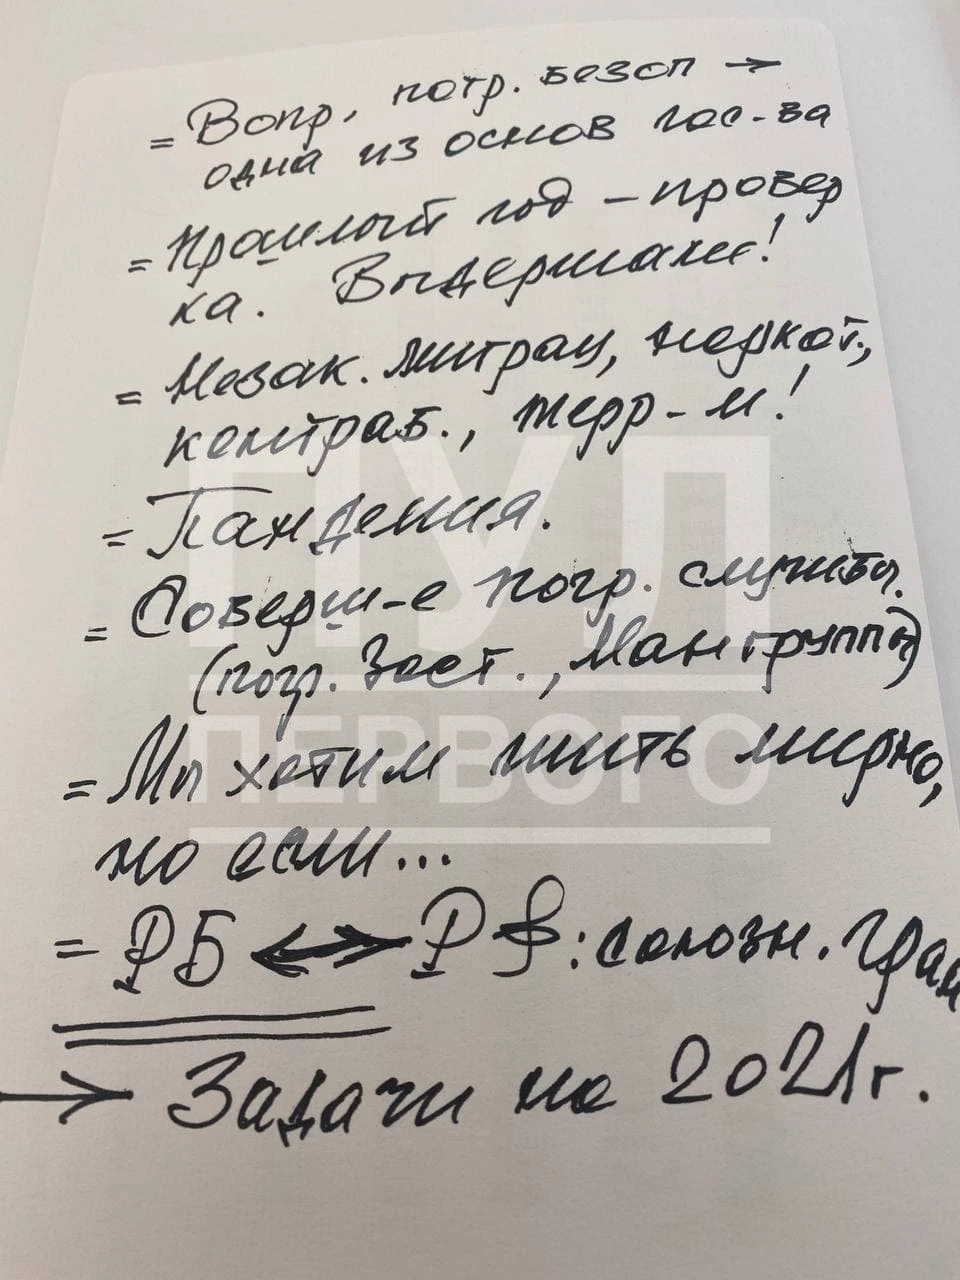 = Вопр. погр. безоп →
одна из основ гос-ва
= Прошлый год – провер
ка. Выдержали!
= Незак. миграц, наркот.,
контраб., терр-м!
= Пандемия.
= Соверш-е погр. службы.
(погр. заст., Мангруппы)
= Мы хотим жить мирно,
но если...
= РБ ↔ РФ: союзн. гран
→ Задачи на 2021г.
ПУЛ
ПЕРВОГО